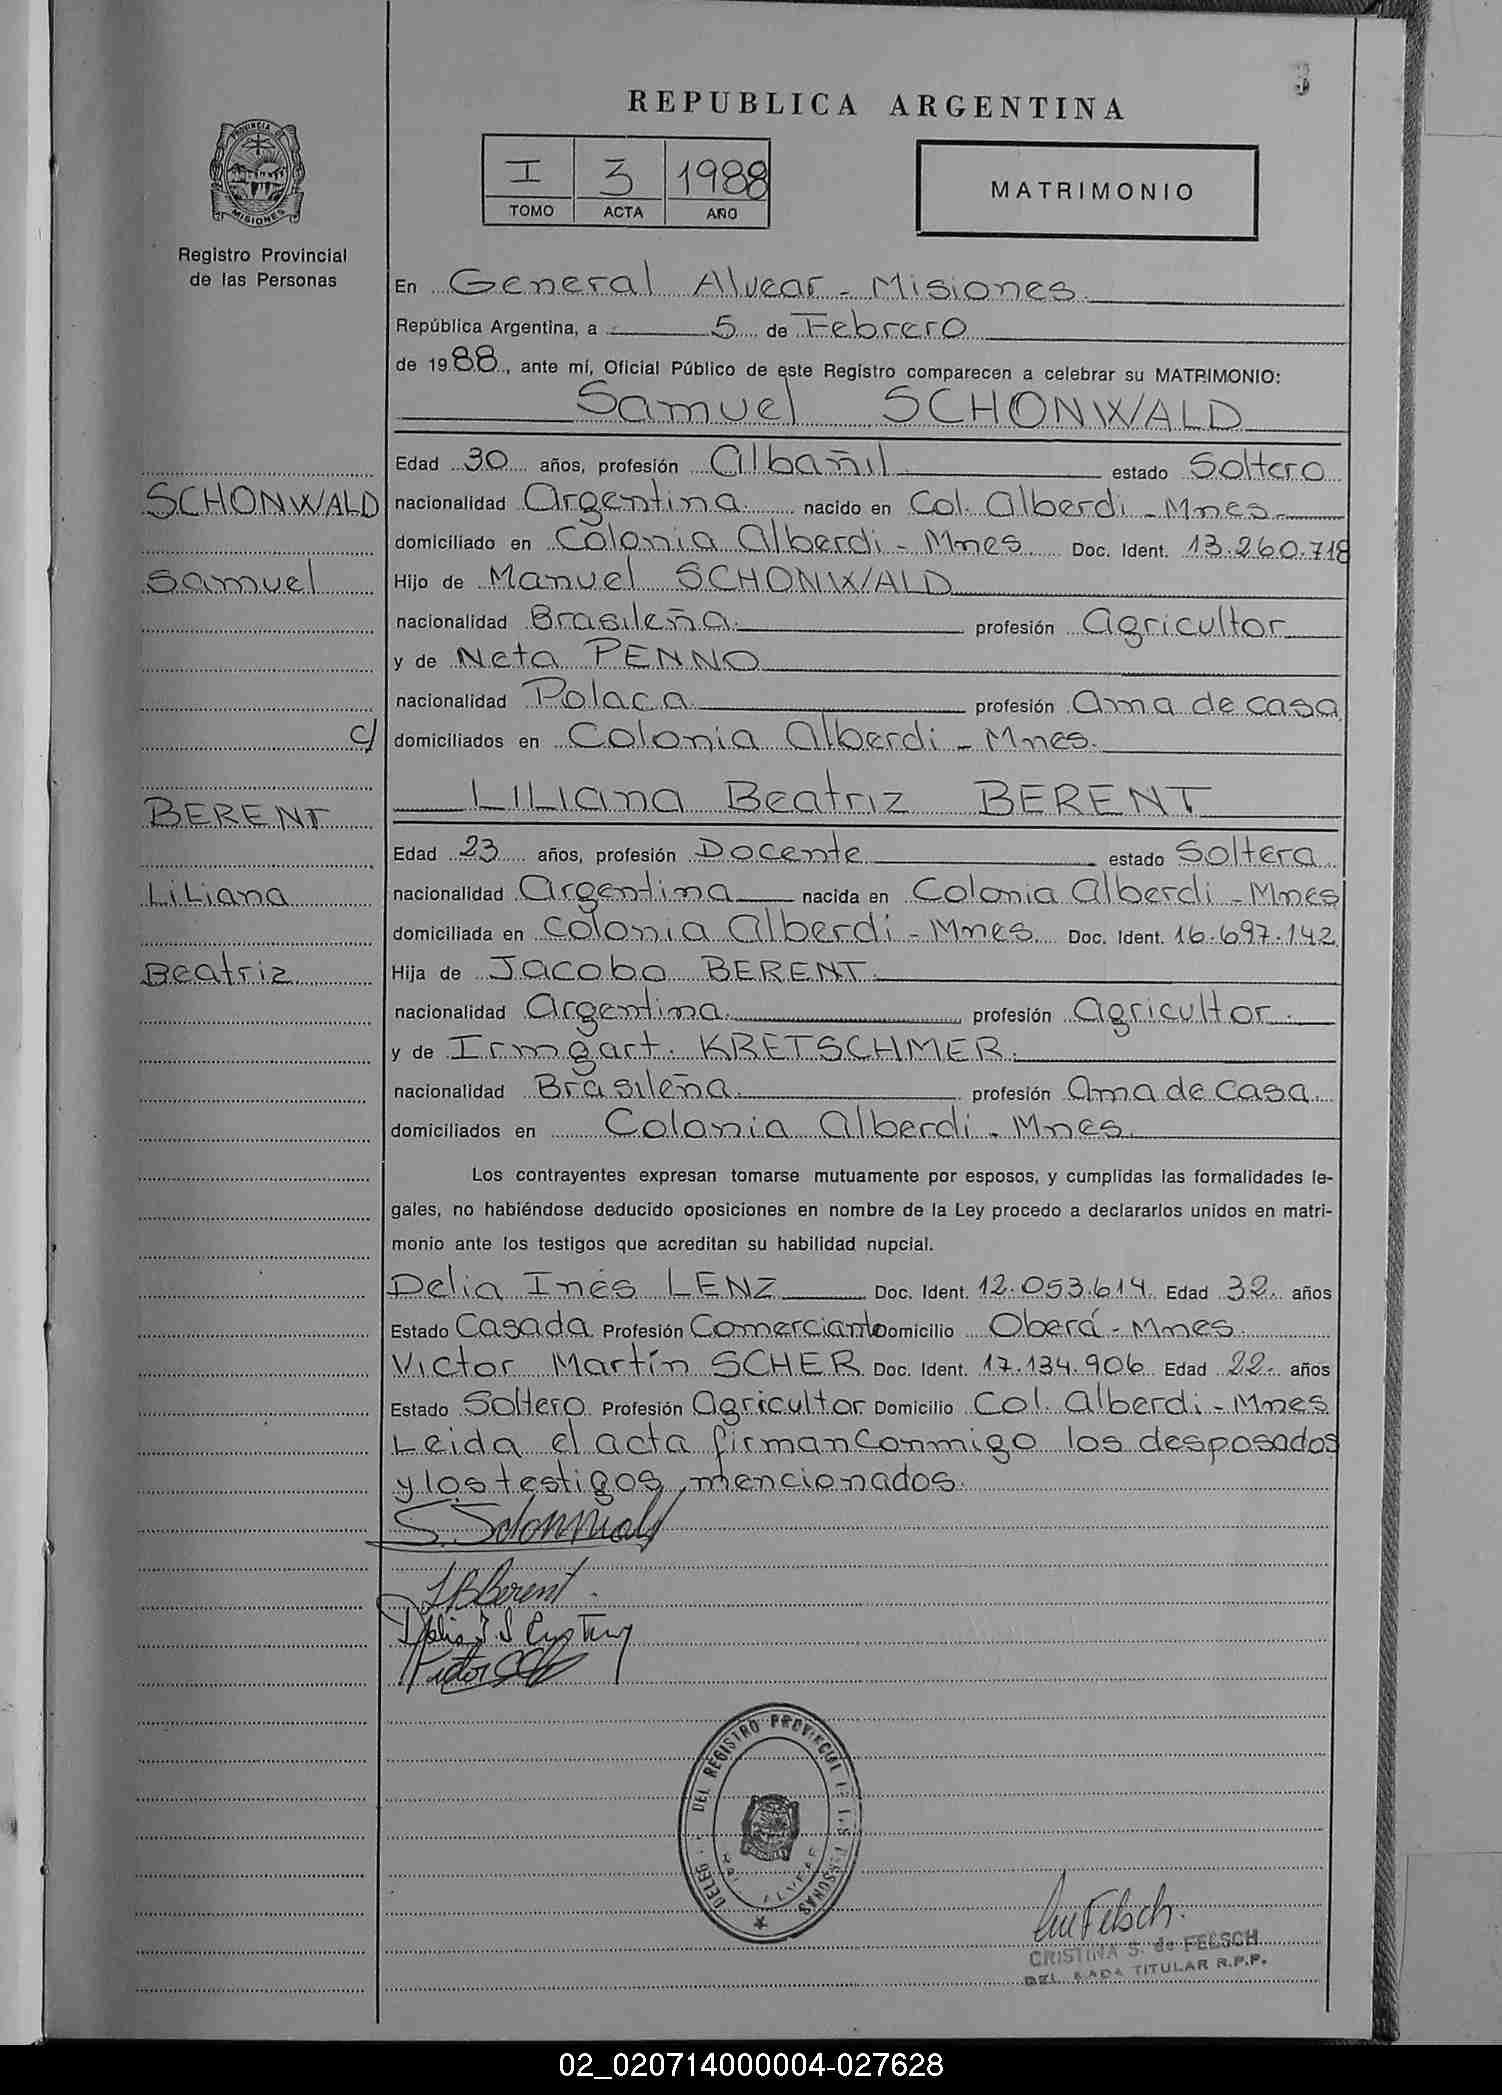 3
REPUBLICA ARGENTINA
I 3 1988
TOMO ACTA AÑO
MATRIMONIO
PROVINCIA DE
MISIONES
Registro Provincial
de las Personas
En General Alvear - Misiones
República Argentina, a 5 de Febrero
de 1988, ante mí, Oficial Público de este Registro comparecen a celebrar su MATRIMONIO:
Samuel SCHONWALD
Edad 30 años, profesión Albañil estado Soltero
SCHONWALD
nacionalidad Argentina nacido en Col. Alberdi - Mnes.
domiciliado en Colonia Alberdi - Mnes Doc. Ident. 13.260.718
Samuel
Hijo de Manuel SCHONWALD
nacionalidad Brasileña. profesión Agricultor
y de Neta PENNO
nacionalidad Polaca profesión Ama de casa
c/
domiciliados en Colonia Alberdi - Mnes.
Liliana Beatriz BERENT
BERENT
Edad 23 años, profesión Docente estado Soltera
Liliana
nacionalidad Argentina nacida en Colonia Alberdi - Mnes
domiciliada en Colonia Alberdi - Mnes Doc. Ident. 16.697.142
Beatriz
Hija de Jacobo BERENT.
nacionalidad Argentina. profesión Agricultor.
y de Irmgart. KRETSCHMER.
nacionalidad Brasileña. profesión Ama de Casa.
domiciliados en Colonia Alberdi - Mnes.
Los contrayentes expresan tomarse mutuamente por esposos, y cumplidas las formalidades le-
gales, no habiéndose deducido oposiciones en nombre de la Ley procedo a declararlos unidos en matri-
monio ante los testigos que acreditan su habilidad nupcial.
Delia Inés LENZ Doc. Ident. 12.053.614 Edad 32 años
Estado Casada Profesión Comerciante Domicilio Oberá - Mnes.
Victor Martín SCHER Doc. Ident. 17.134.906 Edad 22 años
Estado Soltero Profesión Agricultor Domicilio Col. Alberdi - Mnes
Leida el acta firman Conmigo los desposados
y los testigos mencionados.
LBBerent.
DELEG. DEL REGISTRO PROVINCIAL DE LAS PERSONAS
ALVEAR
CRISTINA S. de FELSCH
TITULAR R.P.P.
02_020714000004-027628